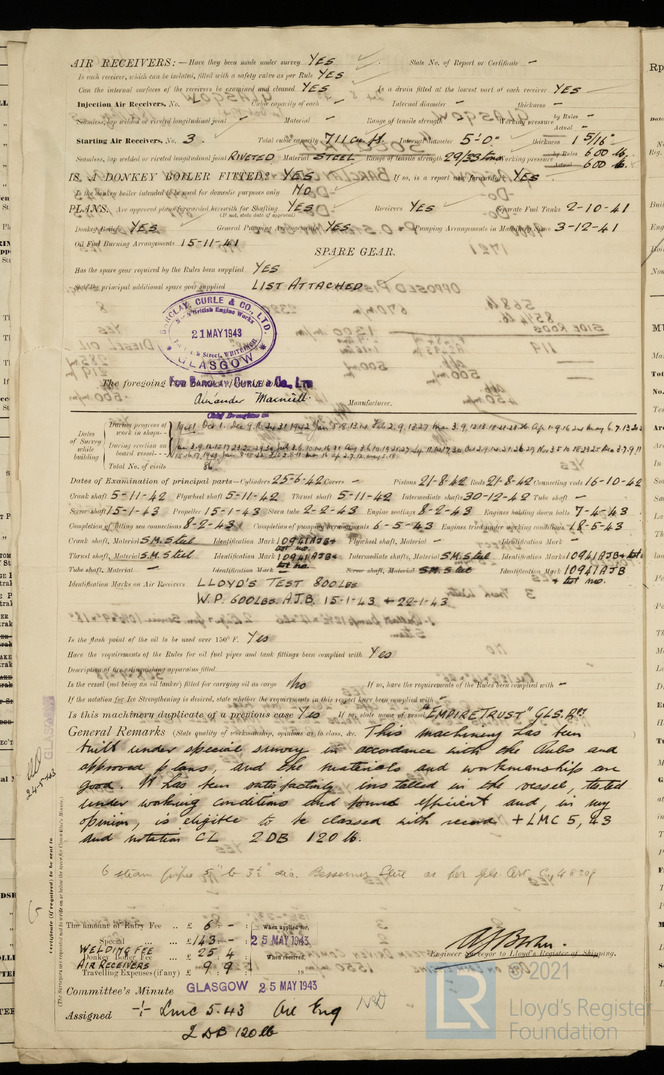 AIR RECEIVERS:— Have they been made under survey YES State No. of Report or Certificate —
Is each receiver, which can be isolated, fitted with a safety valve as per Rule YES
Can the internal surfaces of the receivers be examined and cleaned YES Is a drain fitted at the lowest part of each receiver YES
Injection Air Receivers, No. — Cubic capacity of each — Internal diameter — thickness —
Seamless, lap welded or riveted longitudinal joint — Material — Range of tensile strength — Working pressure by Rules — Actual —
Starting Air Receivers, No. 3. Total cubic capacity 711 cu ft Internal diameter 5'-0" thickness 1 5/16"
Seamless, lap welded or riveted longitudinal joint RIVETED Material STEEL Range of tensile strength 29/33 tons Working pressure by Rules 600 lb. Actual 600 lb.
IS A DONKEY BOILER FITTED? YES If so, is a report now forwarded? YES
Is the donkey boiler intended to be used for domestic purposes only NO
PLANS. Are approved plans forwarded herewith for Shafting YES Receivers YES Separate Fuel Tanks 2-10-41
(If not, state date of approval)
Donkey Boilers YES General Pumping Arrangements YES Pumping Arrangements in Machinery Space 3-12-41
Oil Fuel Burning Arrangements 15-11-41
SPARE GEAR.
Has the spare gear required by the Rules been supplied YES
State the principal additional spare gear supplied LIST ATTACHED
BARCLAY, CURLE & CO., LTD.
North British Engine Works
21 MAY 1943
WHITEINCH
GLASGOW
The foregoing
FOR BARCLAY, CURLE & Co., LTD
Alexander Macneill Manufacturer.
Chief Draughtsman
Dates of Survey while building
During progress of work in shops--
During erection on board vessel---
Total No. of visits 86
Dates of Examination of principal parts—Cylinders 25-6-42 Covers — Pistons 21-8-42 Rods 21-8-42 Connecting rods 16-10-42
Crank shaft 5-11-42 Flywheel shaft 5-11-42 Thrust shaft 5-11-42 Intermediate shafts 30-12-42 Tube shaft —
Screw shaft 15-1-43 Propeller 15-1-43 Stern tube 2-2-43 Engine seatings 8-2-43 Engines holding down bolts 7-4-43
Completion of fitting sea connections 8-2-43 Completion of pumping arrangements 6-5-43 Engines tried under working conditions 18-5-43
Crank shaft, Material S.M. Steel Identification Mark 10941 AJB + tot no. Flywheel shaft, Material — Identification Mark —
Thrust shaft, Material S.M. Steel Identification Mark 10941 AJB + tot no. Intermediate shafts, Material S.M. Steel Identification Marks 10941 AJB + tot no.
Tube shaft, Material — Identification Mark — Screw shaft, Material S.M. Steel Identification Mark 10941 AJB + tot no.
Identification Marks on Air Receivers LLOYD'S TEST 800 LBS
W.P. 600LBS. A.J.B. 15-1-43 + 22-1-43
Is the flash point of the oil to be used over 150° F. Yes
Have the requirements of the Rules for oil fuel pipes and tank fittings been complied with Yes
Description of fire extinguishing apparatus fitted
Is the vessel (not being an oil tanker) fitted for carrying oil as cargo No If so, have the requirements of the Rules been complied with —
If the notation for Ice Strengthening is desired, state whether the requirements in this respect have been complied with —
Is this machinery duplicate of a previous case Yes If so, state name of vessel "EMPIRE TRUST" GLS. Rpt
General Remarks (State quality of workmanship, opinions as to class, &c. This machinery has been
built under special survey in accordance with the Rules and
approved plans, and the materials and workmanship are
good. It has been satisfactorily installed in the vessel, tested
under working conditions and found efficient and, in my
opinion, is eligible to be classed with record +LMC 5, 43
and notation CL 2DB 120 lb.
6 steam pipes
The amount of Entry Fee .. £ 6 : - : When applied for,
Special ... ... £ 143 : - : 25 MAY 1943
WELDING FEE
Donkey Boiler Fee ... £ 25 : 4 When received,
AIR RECEIVERS
Travelling Expenses (if any) £ 9 : 9 : 19
Engineer Surveyor to Lloyd's Register of Shipping.
Committee's Minute GLASGOW 25 MAY 1943
Assigned + LMC 5.43 Oil Eng
2 DB 120 lb
GLASGOW
24-5-43
Certificate (if required) to be sent to
(The Surveyors are requested not to write on or below the space for Committee's Minute.)
© 2021
LR
Lloyd's Register
Foundation